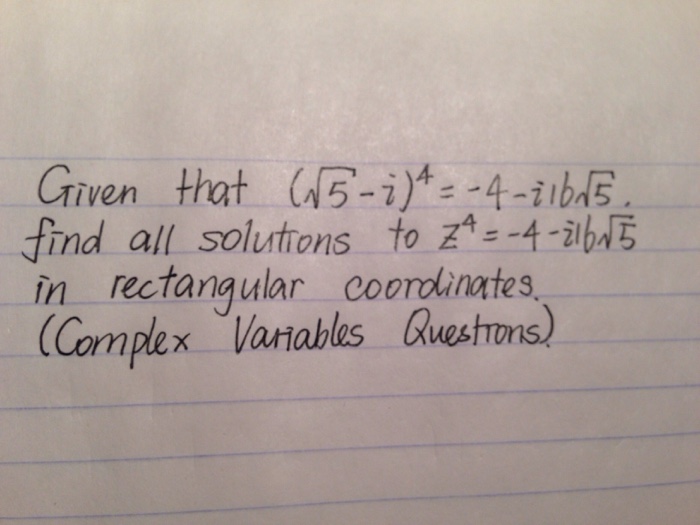 Given that (√5-i)⁴ = -4-i16√5.
find all solutions to z⁴ = -4-i16√5
in rectangular coordinates.
(Complex Variables Questions)